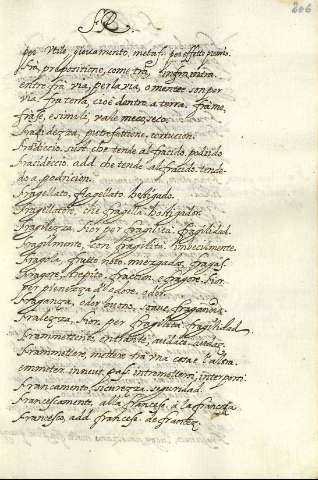 FR
206
per Utile, giovamento, metaf. per effetto
Fra, preposizione, come trà, infra, intra
entro fra via, per la via, o mentre son per
via, fra terra, cioè dentro a terra. frà me,
frà se, e simili, vale meco, seco.
Fracidezza, putrefattione, corrucion.
Fradiccio, sust. che tende al fracido, podrido
Fracidiccio, add. che tende al fracido. tende-
do a podricion.
Fragellato, flagellato. hostigado.
Fragellatore, che fragella. hostigador.
Fragilezza, Fior. per fragilità. fragilidad.
Fragilmente, con fragilità. imbecilmente.
Fragola, frutto noto. mezgado. fragas.
Fragore, strepito. fraction. fragore, Fior.
per pienezza d'odore. odor.
Fraganza, odor buono, soave. fragancia.
Fralezza, Fior. per fragilità. fragilidad
Frammettente, entrante, ardito.
Frammettere, mettere frà una cosa e l'altra.
entremeter. in neut. pass. intromettersi, interponi
Francamento, sicurezza. seguridad.
Francescamente, alla francese. a la francesa
Francesco, add. francese. de francez.